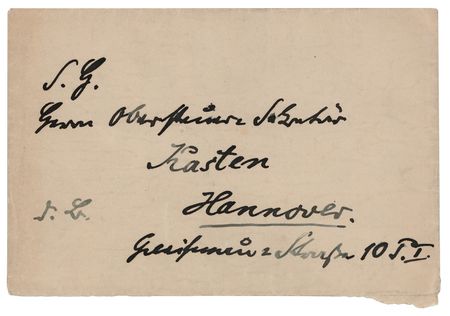 S. G.
Herrn Obersteuer= Sekretär
Kasten
d. B.
Hannover.
Straße 10 P. I.